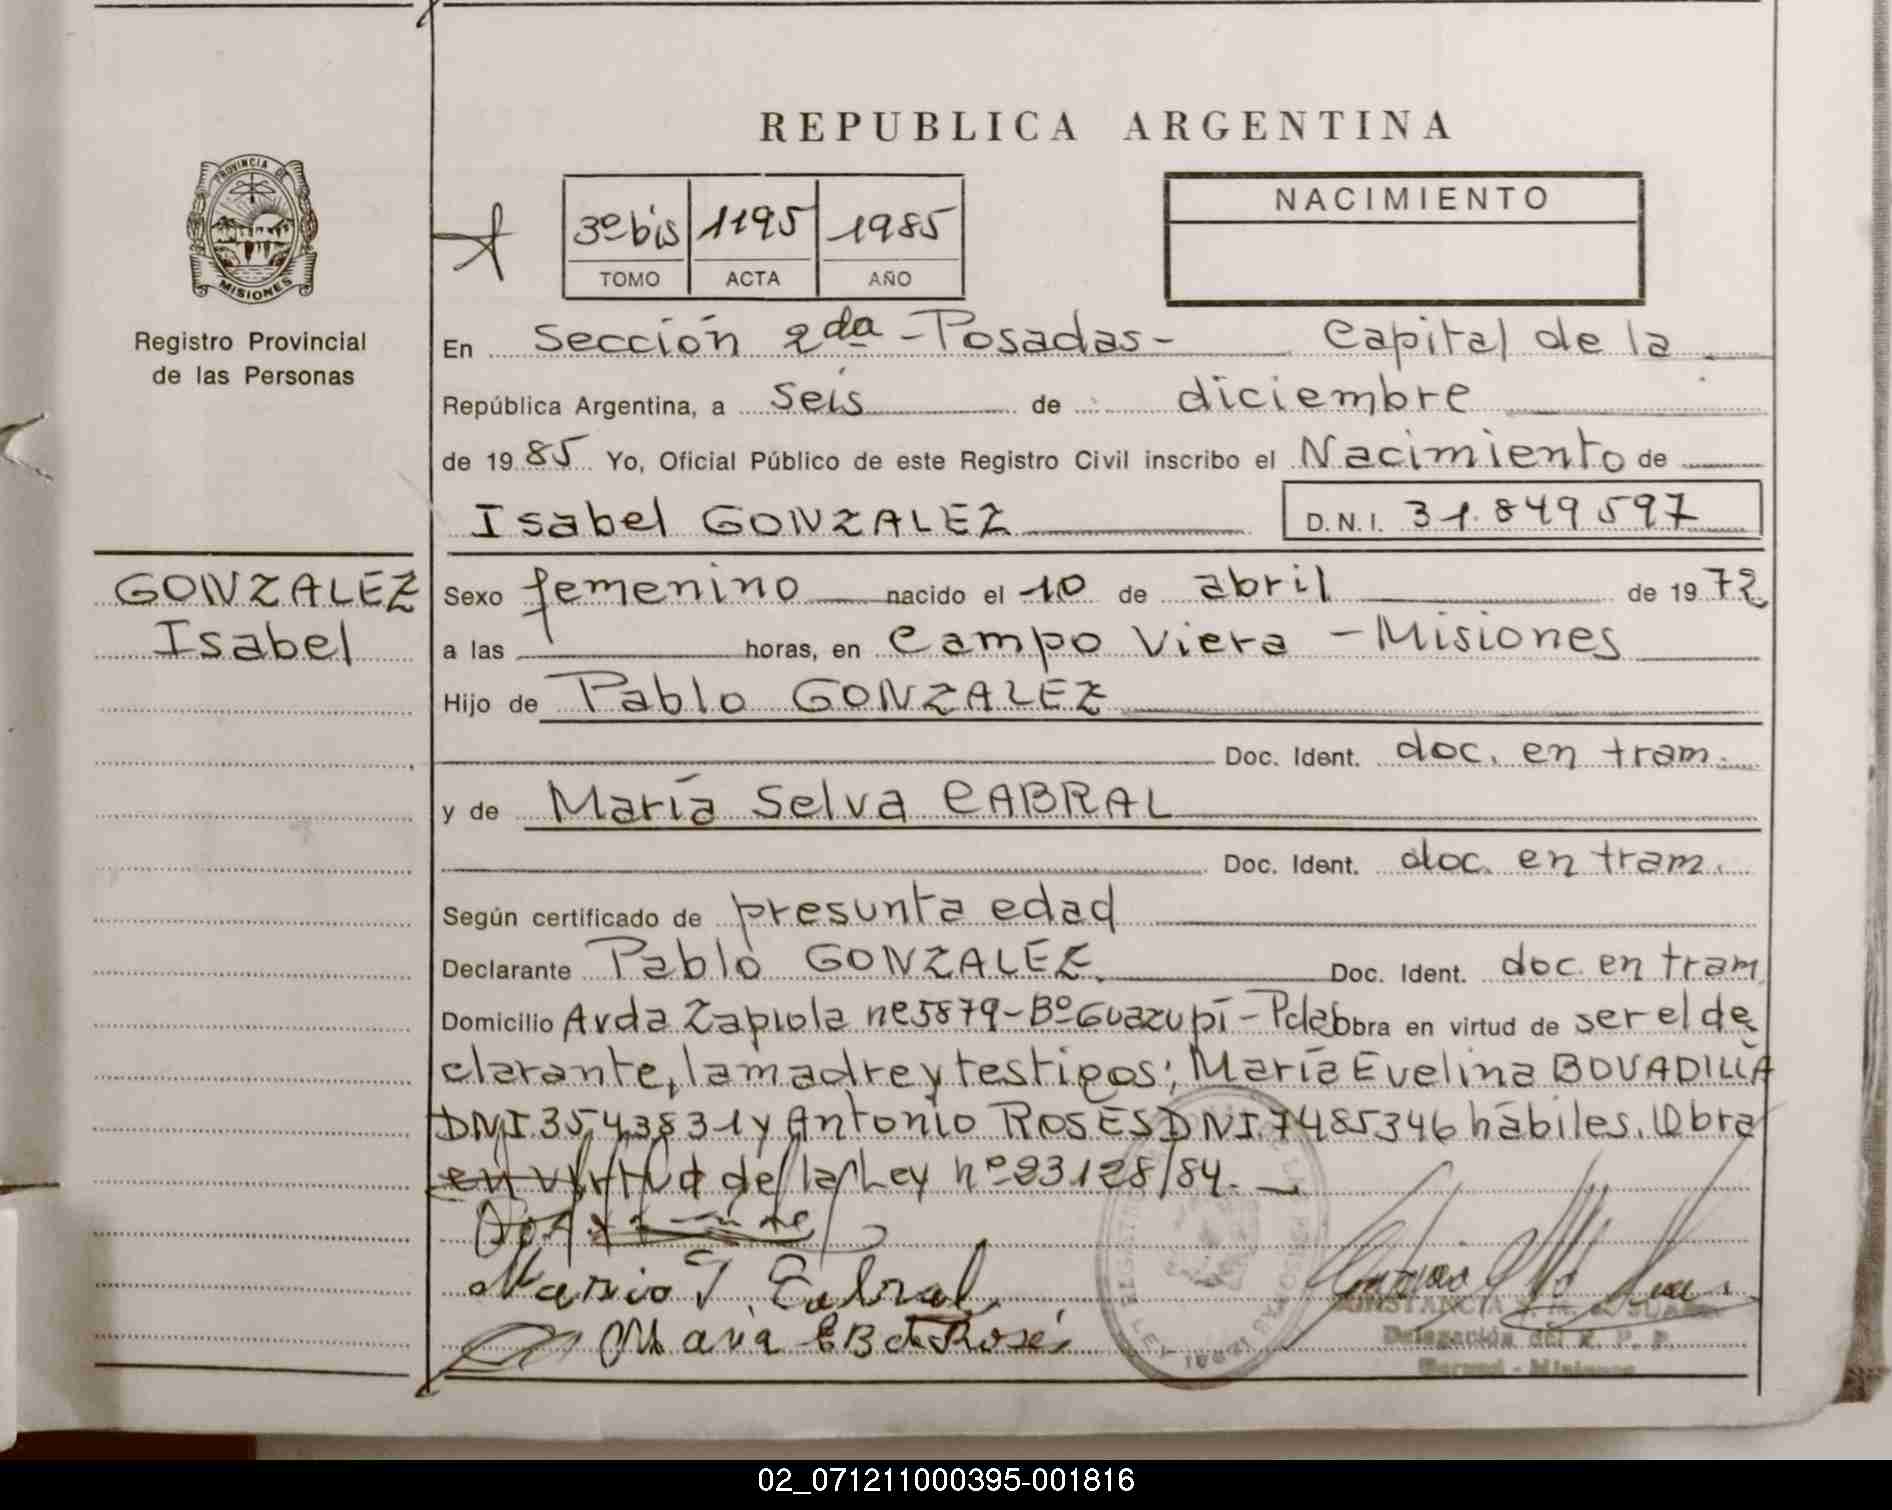 REPUBLICA ARGENTINA
PROVINCIA DE
MISIONES
Registro Provincial
de las Personas
3º bis 1195 1985
TOMO ACTA AÑO
NACIMIENTO
En Sección 2da - Posadas - Capital de la
República Argentina, a seis de diciembre
de 1985 Yo, Oficial Público de este Registro Civil inscribo el Nacimiento de
Isabel GONZALEZ D.N.I. 31.849597
GONZALEZ
Isabel
Sexo femenino nacido el 10 de abril de 1972
a las horas, en Campo Viera - Misiones
Hijo de Pablo GONZALEZ
Doc. Ident. doc. en tram.
y de María Selva CABRAL
Doc. Ident. doc. en tram.
Según certificado de presunta edad
Declarante Pablo GONZALEZ Doc. Ident. doc. en tram
Domicilio Avda Zapiola nº5879 - Bº Guazupí - Pdas Obra en virtud de ser el de
clarante, la madre y testigos; María Evelina BOVADILLA
DNI 3543831 y Antonio ROSES DNI. 7485346 hábiles. Obra
en virtud de la Ley nº 23128/84. -
Cabral
Maria E B de Rosés
Delegación del R. P. P.
02_071211000395-001816